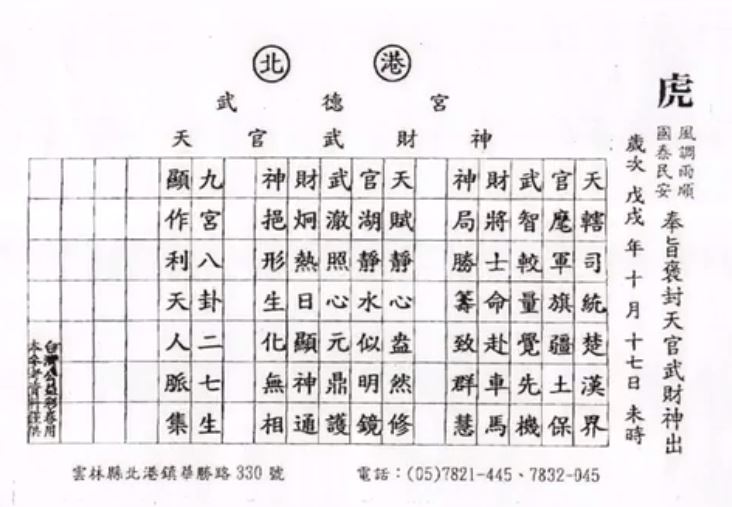 北港
武德宮
天官武財神
虎
風調雨順
國泰民安
奉旨褒封天官武財神出
歲次戊戌年十月十七日未時
天轄司統楚漢界
官麾軍旗疆土保
武智較量覺先機
財將士命赴車馬
神局勝籌致群慧
天賦靜心盎然修
官湖靜水似明鏡
武澈照心元鼎護
財炯熱日顯神通
神挹形生化無相
九宮八卦二七生
顯作利天人脈集
台灣合益彩券用
本參考資料僅供
雲林縣北港鎮華勝路330號
電話:(05)7821-445、7832-045